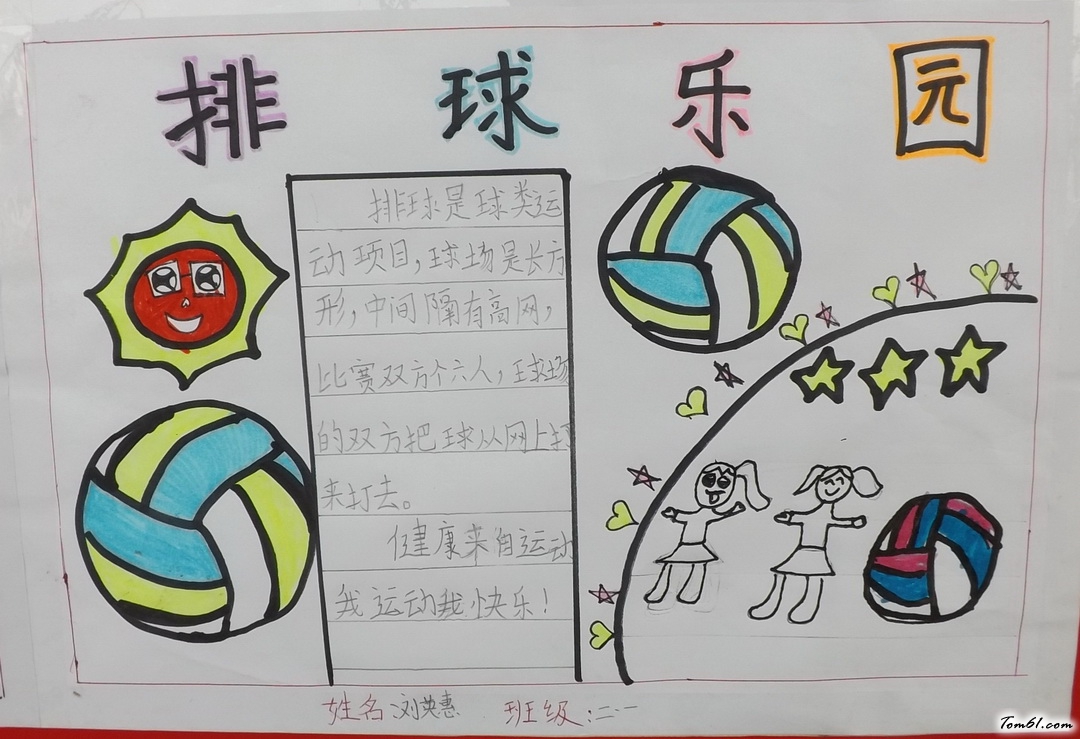 排球乐园
排球是球类运
动项目,球场是长方
形,中间隔有高网,
比赛双方个六人,球场
的双方把球从网上打
来打去。
健康来自运动
我运动我快乐!
姓名:刘英惠 班级:二·一
Tom61.com